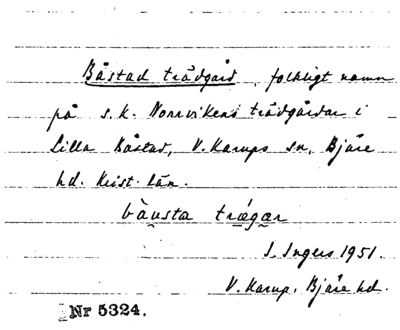 Båstad trädgård, folkligt namn
på s.k. Norrvikens trädgårdar i
Lilla Båstad, V. Karups sn, Bjäre
hd. Krist. län.
bàusta trǽgar
I. Ingers 1951.
V. Karup, Bjäre hd.
Nr 5324.